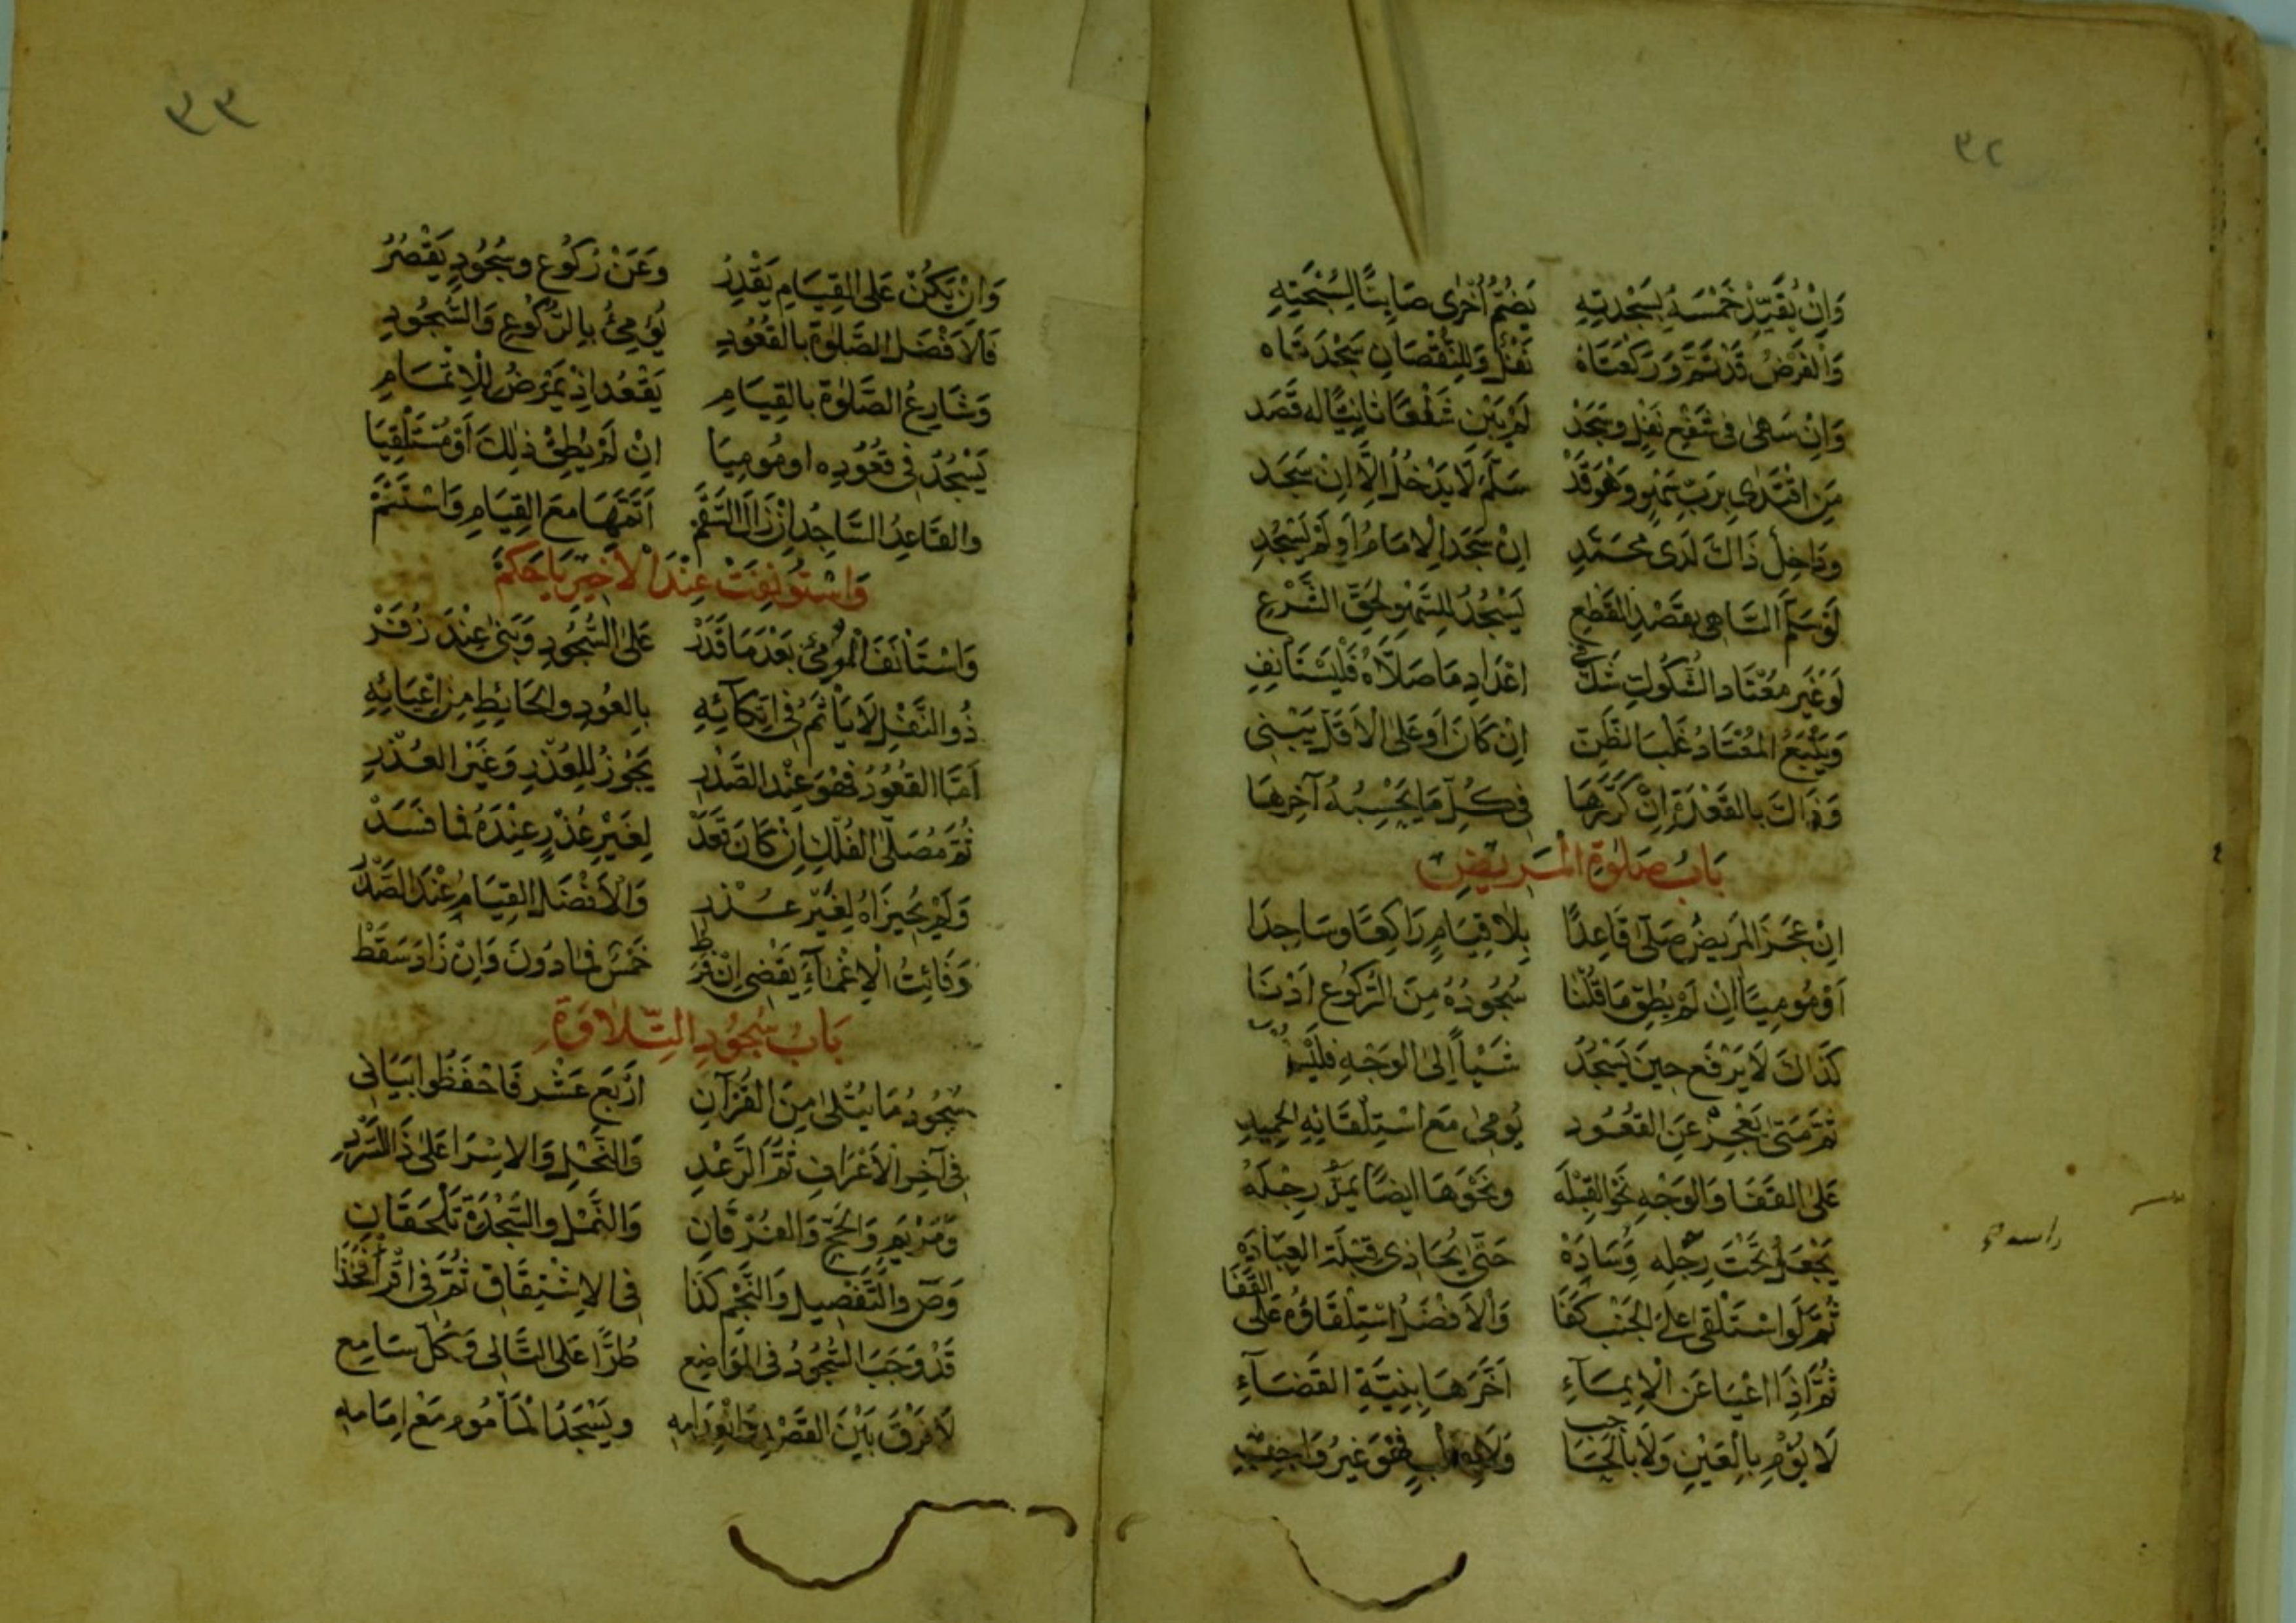 ٣٢
وَاِنْ يُقَيِّدْ خَمْسَهُ بِسَجْدَتِهِ يَضُمُّ اُخْرٰى صَائِنًا لِسُبْحَتِهِ
وَالْفَرْضُ قَدْ تَمَّ وَرَكْعَتَاهُ نَفْلٌ وَلِلنُّقْصَانِ سَجْدَتَاه
وَاِنْ سَهٰى فِى شَفْعِ نَفْلٍ وسَجَدْ لَمْ يَبْنِ شَفْعًا ثانِيًا له قَصَد
مَنِ اقْتَدٰى بِرَبِّ سَهْوٍ وَهْوَ قَدْ سَلَّمَ لَا يَدْخُلُ اِلَّا اِنْ سَجَد
ودَاخِلٌ ذَاكَ لَدَى مُحَمَّدِ اِنْ سَجَدَ الْاِمَامُ اَوْ لَمْ يَسْجُدِ
لَوْ سَلَّمَ السَّاهِى بِقَصْدِ القَطْعِ يَسْجُدُ لِلسَّهْوِ لِحَقِّ الشَّرْعِ
لَوْ غَيْرُ مُعْتَادِ الشُّكُوكِ شَكَّ فِي اعْدَادِ مَا صَلَّاهُ فَلْيَسْتَأنِفِ
وَيَتْبَعُ المُعْتَادُ غَلْبَ الظَّنِّ اِنْ كَانَ اَوْ عَلى الْاَقَلِّ يَبْنِى
وَذَاكَ بِالقَعْدَةِ اِنْ كَرَّرَهَا فِى كُلِّ مَا يَحْسِبُهُ آخِرهَا
بَابُ صَلٰوةِ الْمَرِيضِ
اِنْ عَجَزَ المَرِيضُ صَلّٰى قَاعِدًا بِلَا قِيَامٍ رَاكِعًا وسَاجِدَا
اَوْ مُومِيًا اِنْ لَمْ يُطِقْ مَا قُلْنَا سُجُودُهُ مِنَ الرُّكُوعِ اَدْنَا
كَذَاكَ لَا يَرْفَع حِينَ يَسْجُدُ شَيْأً اِلى الوَجْهِ
ثُمَّ مَتٰى يَعْجِزْ عَنِ القُعُود يُومِى مَعَ اسْتِلْقَائِهِ
عَلى القَفَا وَالوَجْهِ نَحْوَ القِبْلَه ونَحْوَهَا اَيضًا يَمُدُّ رِجْلَهُ
يَجْعَلُ تَحْتَ رِجْلِه وِسَادَهْ حَتّٰى يُحَاذِى قِبْلَة العِبَادَهِ
راسه
ثُمَّ لَوِ اسْتَلْقٰى عَلى الجَنْبِ كَفَا وَالْاَفْضَلُ اسْتِلْقَاؤُهُ عَلَى القَفَا
ثُمَّ اِذَا اعْيَا عَنِ الْاِيمَآءِ اَخَّرَهَا بِنِيَّةِ القَضَآءِ
لَا يُوْمِ بِالعَيْنِ وَلَا بالحَاجِبِ فَهْوَ غَيْرُ وَاجِبِ
٣٣
وَاِنْ يَكُنْ عَلى القِيَامِ يَقْدِرُ وَعَنْ رُكُوعٍ وسُجُودٍ يَقْصُرُ
فَالْاَفْضَلُ الصَّلٰوةُ بالقُعُودِ يُومِئُ بِالرُّكُوعِ وَالسُّجُودِ
وَشَارِعُ الصَّلٰوةِ بالقِيَامِ يَقْعُد اِذْ يَمْرَضُ لِلْاِتْمَامِ
يَسْجُدُ فِى قُعُودِه او مُومِيَا اِنْ لَمْ يُطِقْ ذٰلِكَ اَوْ مُسْتَلْقِيَا
والقَاعِدُ السَّاجِدُ اِنْ زَالَ السَّقَمْ اَتَمَّهَا مَعَ القِيَامِ وَاسْتَتَمّ
وَاسْتُوْنِفَتْ عِنْدَ الْاَخِيرِ يَا حَكَمْ
وَاسْتَأنَفَ المُومِئُ بَعْدَ مَا قَدَرْ عَلَى السُّجُودِ وَبَنٰى عِنْدَ زُفَرْ
ذُو النَّفْلِ لَا يَأْثَمُ فِى اتِّكَآئِهِ بِالعُودِ والحَائِطِ مِنْ اِعْيَائِهِ
اَمَّا القُعُودُ فَهْوَ عِنْدَ الصَّدْرِ يَجُوزُ لِلعُذْرِ وَغَيْرِ العُذْرِ
ثُمَّ مُصَلّى الفُلْكِ اِنْ كَانَ قَعَدْ لِغَيْرِ عُذْرٍ عِنْدَهُ فما فَسَدْ
وَلَمْ يُجِيزَاهُ لِغَيْرِ عُذْرِ وَالْاَفْضَلُ القِيَامُ عِنْدَ الصَّدْرِ
وَفَائِتُ الْاِغْمَآءِ يَقْضِى اِنْ فَرَطْ خَمْسٌ فما دُونَ وَاِنْ زَادَ سَقَطْ
بَابُ سُجُودِ التِّلَاوَةِ
سُجُودُ مَا يُتْلٰى مِنَ القُرْآنِ اَرْبَعَ عَشْرٍ فَاحْفَظُوا بَيَانِى
فِى آخِرِ الْاَعْرَافِ ثُمَّ الرَّعْدِ وَالنَّحْلِ وَالاِسْرَا عَلى ذَا السَّرْدِ
وَمَرْيَمٍ وَالحَجِّ وَالفُرْقَانِ وَالنَّمْلِ والسَّجْدَةِ تَلْحَقَانِ
وَصٓ والتَّفْصِيلِ وَالنَّجْمِ كَذَا فِى الاِنْشِقَاقِ ثُمَّ فِى اقْرَأْ فَخُذَا
قَدْ وَجَبَ السُّجُودُ فِى المَوَاضِعِ طُرًّا عَلَى التَّالِى وَكُلِّ سَامِعِ
لَا فَرْقَ بَيْنَ القَصْدِ وَانْعِدَامِهِ ويَسْجُدُ الْمَأْمُوم مَعْ اِمَامِهِ